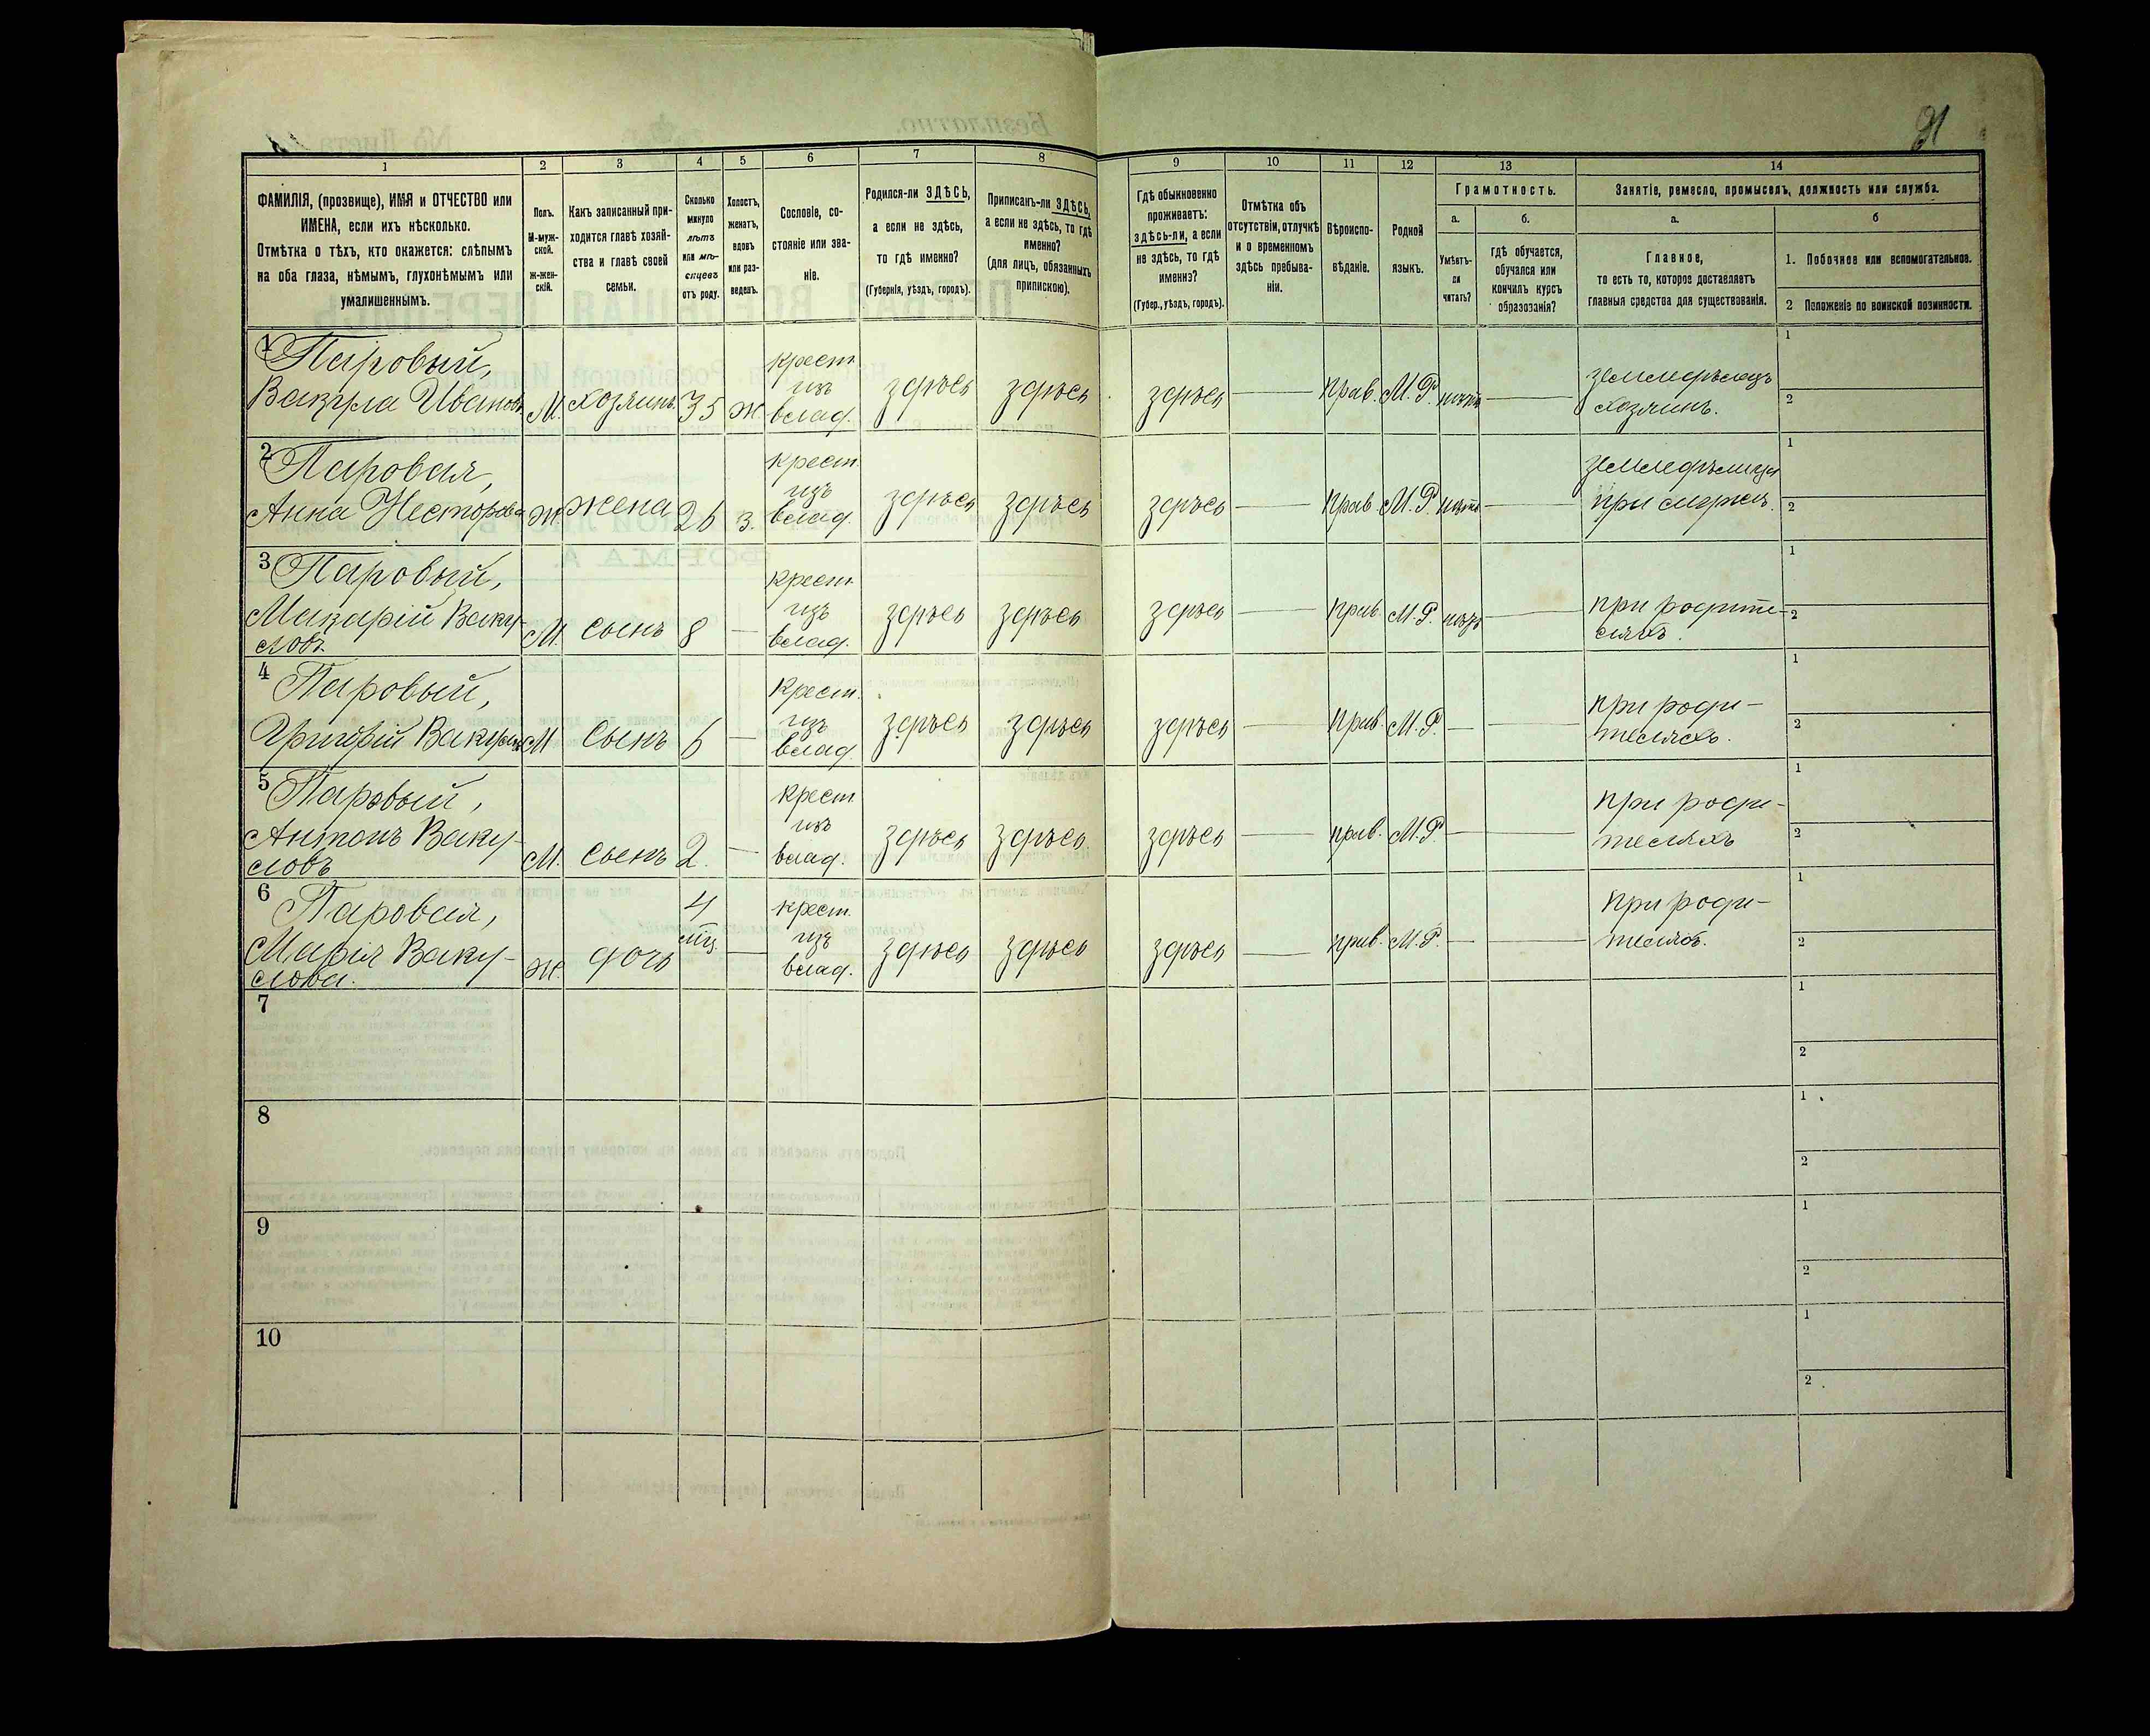 91
1 2 3 4 5 6 7 8 9 10 11 12 13 14
ФАМИЛІЯ, (прозвище), ИМЯ и ОТЧЕСТВО или
ИМЕНА, если ихъ нѣсколько.
Отмѣтка о тѣхъ, кто окажется: слѣпымъ
на оба глаза, нѣмымъ, глухонѣмымъ или
умалишеннымъ.
Полъ.
М-муж-
ской.
ж-жен-
скій.
Какъ записанный при-
ходится главѣ хозяй-
ства и главѣ своей
семьи.
Сколько
минуло
лѣтъ
или мѣ-
сяцевъ
отъ роду.
Холостъ,
женатъ,
вдовъ
или раз-
веденъ.
Сословіе, со-
стояніе или зва-
ніе.
Родился-ли ЗДѢСЬ,
а если не здѣсь,
то гдѣ именно?
(Губернія, уѣздъ, городъ).
Приписанъ-ли ЗДѢСЬ,
а если не здѣсь, то гдѣ
именно?
(для лицъ, обязанныхъ
припискою).
Гдѣ обыкновенно
проживаетъ:
здѣсь-ли, а если
не здѣсь, то гдѣ
именно?
(Губер., уѣздъ, городъ).
Отмѣтка объ
отсутствіи, отлучкѣ
и о временномъ
здѣсь пребыва-
ніи.
Вѣроиспо-
вѣданіе.
Родной
языкъ.
Грамотность.
а.
Умѣетъ-
ли
читать?
б.
гдѣ обучается,
обучался или
кончилъ курсъ
образованія?
Занятіе, ремесло, промыселъ, должность или служба.
а.
Главное,
то есть то, которое доставляетъ
главныя средства для существованія.
б
1. Побочное или вспомогательное.
2 Положеніе по воинской повинности.
1 Паровый,
Вакула Ивановъ М. хозяинъ 35 ж. крест. изъ влад. здѣсь здѣсь здѣсь — прав. М.Р. нѣтъ — земледѣлецъ
хозяинъ.
1
2
2 Паровая,
Анна Несторова Ж. жена 26 з. крест. изъ влад. здѣсь здѣсь здѣсь — прав. М.Р. нѣтъ — земледѣлица
при мужѣ.
1
2
3 Паровый,
Макарій Вакуловъ М. сынъ 8 — крест. изъ влад. здѣсь здѣсь здѣсь — прав. М.Р. нѣтъ — при родите-
ляхъ.
1
2
4 Паровый,
Григорій Вакуловъ М сынъ 6 — крест. изъ влад. здѣсь здѣсь здѣсь — прав. М.Р. — — при роди-
теляхъ.
1
2
5 Паровый,
Антонъ Вакуловъ М. сынъ 2. — крест изъ влад. здѣсь здѣсь здѣсь — прав. М.Р. — — при роди-
теляхъ
1
2
6 Паровая,
Марія Вакулова. Ж. дочь 4 мѣц. — крест. изъ влад. здѣсь здѣсь здѣсь — прав. М.Р. — — при роди-
теляхъ.
1
2
7
1
2
8
1
2
9
1
2
10
1
2